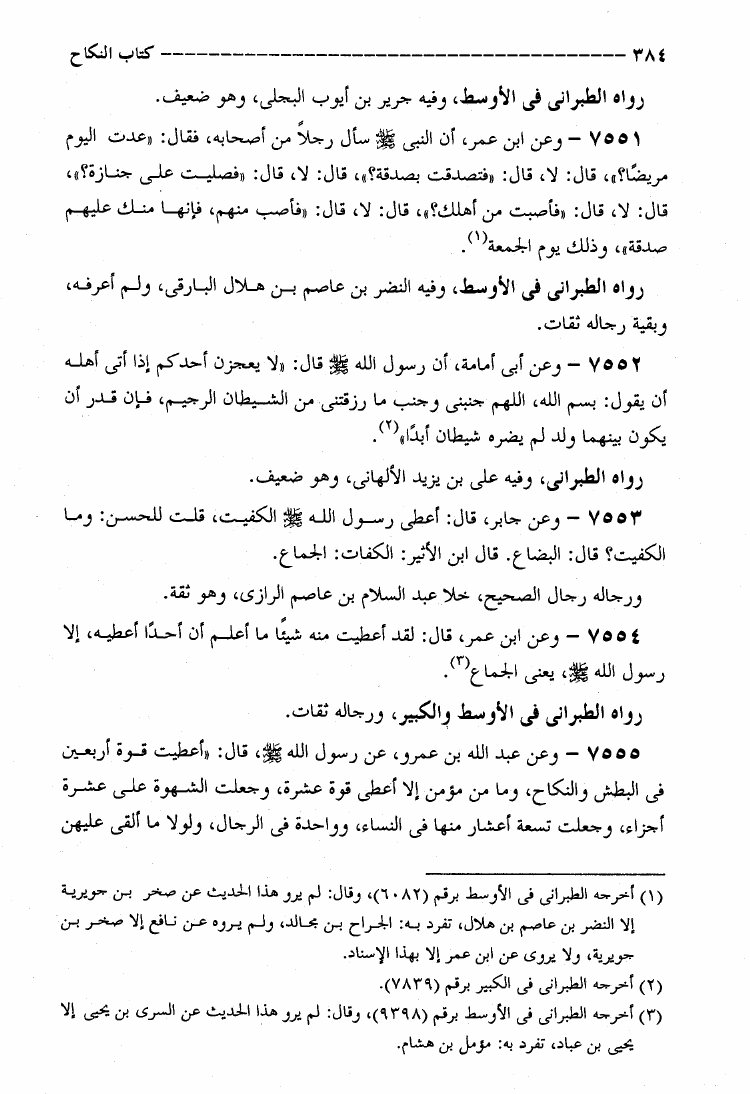 ٣٨٤ ــــــــــــــــــــــــــــــــــــــــــــــــــــ كتاب النكاح
رواه الطبرانى فى الأوسط، وفيه جرير بن أيوب البجلى، وهو ضعيف.
٧٥٥١ – وعن ابن عمر، أن النبى ﷺ سأل رجلاً من أصحابه، فقال: «عدت اليوم
مريضًا؟»، قال: لا، قال: «فتصدقت بصدقة؟»، قال: لا، قال: «فصليت على جنازة؟»،
قال: لا، قال: «فأصبت من أهلك؟»، قال: لا، قال: «فأصب منهم، فإنها منك عليهم
صدقة»، وذلك يوم الجمعة(١).
رواه الطبرانى فى الأوسط، وفيه النضر بن عاصم بن هلال البارقى، ولم أعرفه،
وبقية رجاله ثقات.
٧٥٥٢ – وعن أبى أمامة، أن رسول الله ﷺ قال: «لا يعجزن أحدكم إذا أتى أهله
أن يقول: بسم الله، اللهم جنبنى وجنب ما رزقتنى من الشيطان الرجيم، فإن قدر أن
يكون بينهما ولد لم يضره شيطان أبدًا»(٢).
رواه الطبرانى، وفيه على بن يزيد الألهانى، وهو ضعيف.
٧٥٥٣ – وعن جابر، قال: أعطى رسول الله ﷺ الكفيت، قلت للحسن: وما
الكفيت؟ قال: البضاع. قال ابن الأثير: الكفات: الجماع.
ورجاله رجال الصحيح، خلا عبد السلام بن عاصم الرازى، وهو ثقة.
٧٥٥٤ – وعن ابن عمر، قال: لقد أعطيت منه شيئًا ما أعلم أن أحدًا أعطيه، إلا
رسول الله ﷺ، يعنى الجماع(٣).
رواه الطبرانى فى الأوسط والكبير، ورجاله ثقات.
٧٥٥٥ – وعن عبد الله بن عمرو، عن رسول الله ﷺ، قال: «أعطيت قوة أربعين
فى البطش والنكاح، وما من مؤمن إلا أعطى قوة عشرة، وجعلت الشهوة على عشرة
أجزاء، وجعلت تسعة أعشار منها فى النساء، وواحدة فى الرجال، ولولا ما ألقى عليهن
(١) أخرجه الطبرانى فى الأوسط برقم (٦٠٨٢)، وقال: لم يرو هذا الحديث عن صخر بن جويرية
إلا النضر بن عاصم بن هلال، تفرد به: الجراح بن مخالد، ولم يروه عن نافع إلا صخر بن
جويرية، ولا يروى عن ابن عمر إلا بهذا الإسناد.
(٢) أخرجه الطبرانى فى الكبير برقم (٧٨٣٩).
(٣) أخرجه الطبرانى فى الأوسط برقم (٩٣٩٨)، وقال: لم يرو هذا الحديث عن السرى بن يحيى إلا
يحيى بن عباد، تفرد به: مؤمل بن هشام.